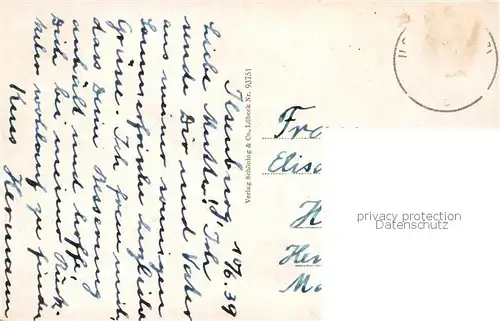 Ilsenburg, 10/6.39
Liebe Mutter! Ich
sende Dir und Vater
aus meiner sonnigen
Sommerfrische herzliche
Grüsse. Ich freue mich,
dass Deine Besserung
anhält und hoffe,
Dich bei meiner Rück-
kehr wohlauf zu finden
Kuss Hermann
Verlag Schöning & Co., Lübeck Nr. 93751
Fra
Elisa
H
Her
Ma
privacy protection
Datenschutz